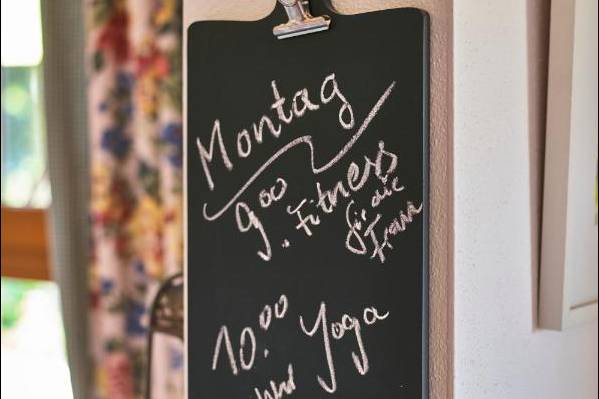 Montag
9⁰⁰. Fitness für die Frau
10.⁰⁰ Yoga
Uhr